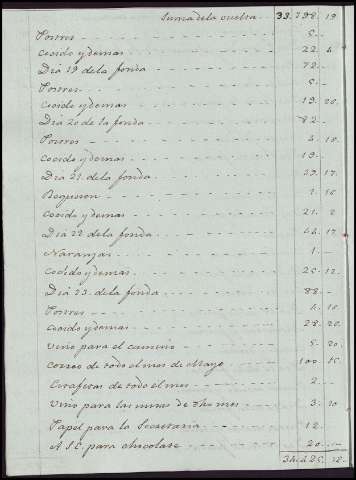 Suma de la vuelta 33.798. 19
Postres 5.
Cosido y demas 22. 4
Dia 19 de la fonda 72.
Postres 5.
Cosido y demas 19. 20.
Dia 20 de la fonda 82.
Postres 4. 10.
Cosido y demas 19.
Dia 21. de la fonda 17.
Cosido y demas 21. 2
Dia 22 de la fonda 17.
Naranjas 1.
Cosido y demas 25. 12.
Dia 23. de la fonda 88.
Postres 4. 10.
Cosido y demas 28. 20.
Vino para el camino 5. 20.
Correo de todo el mes de Mayo 100 15.
de todo el mes 2.
Vino para las misas de dho mes 3. 10
Papel para la Secretaria 12.
A S. E. para chocolate 20.